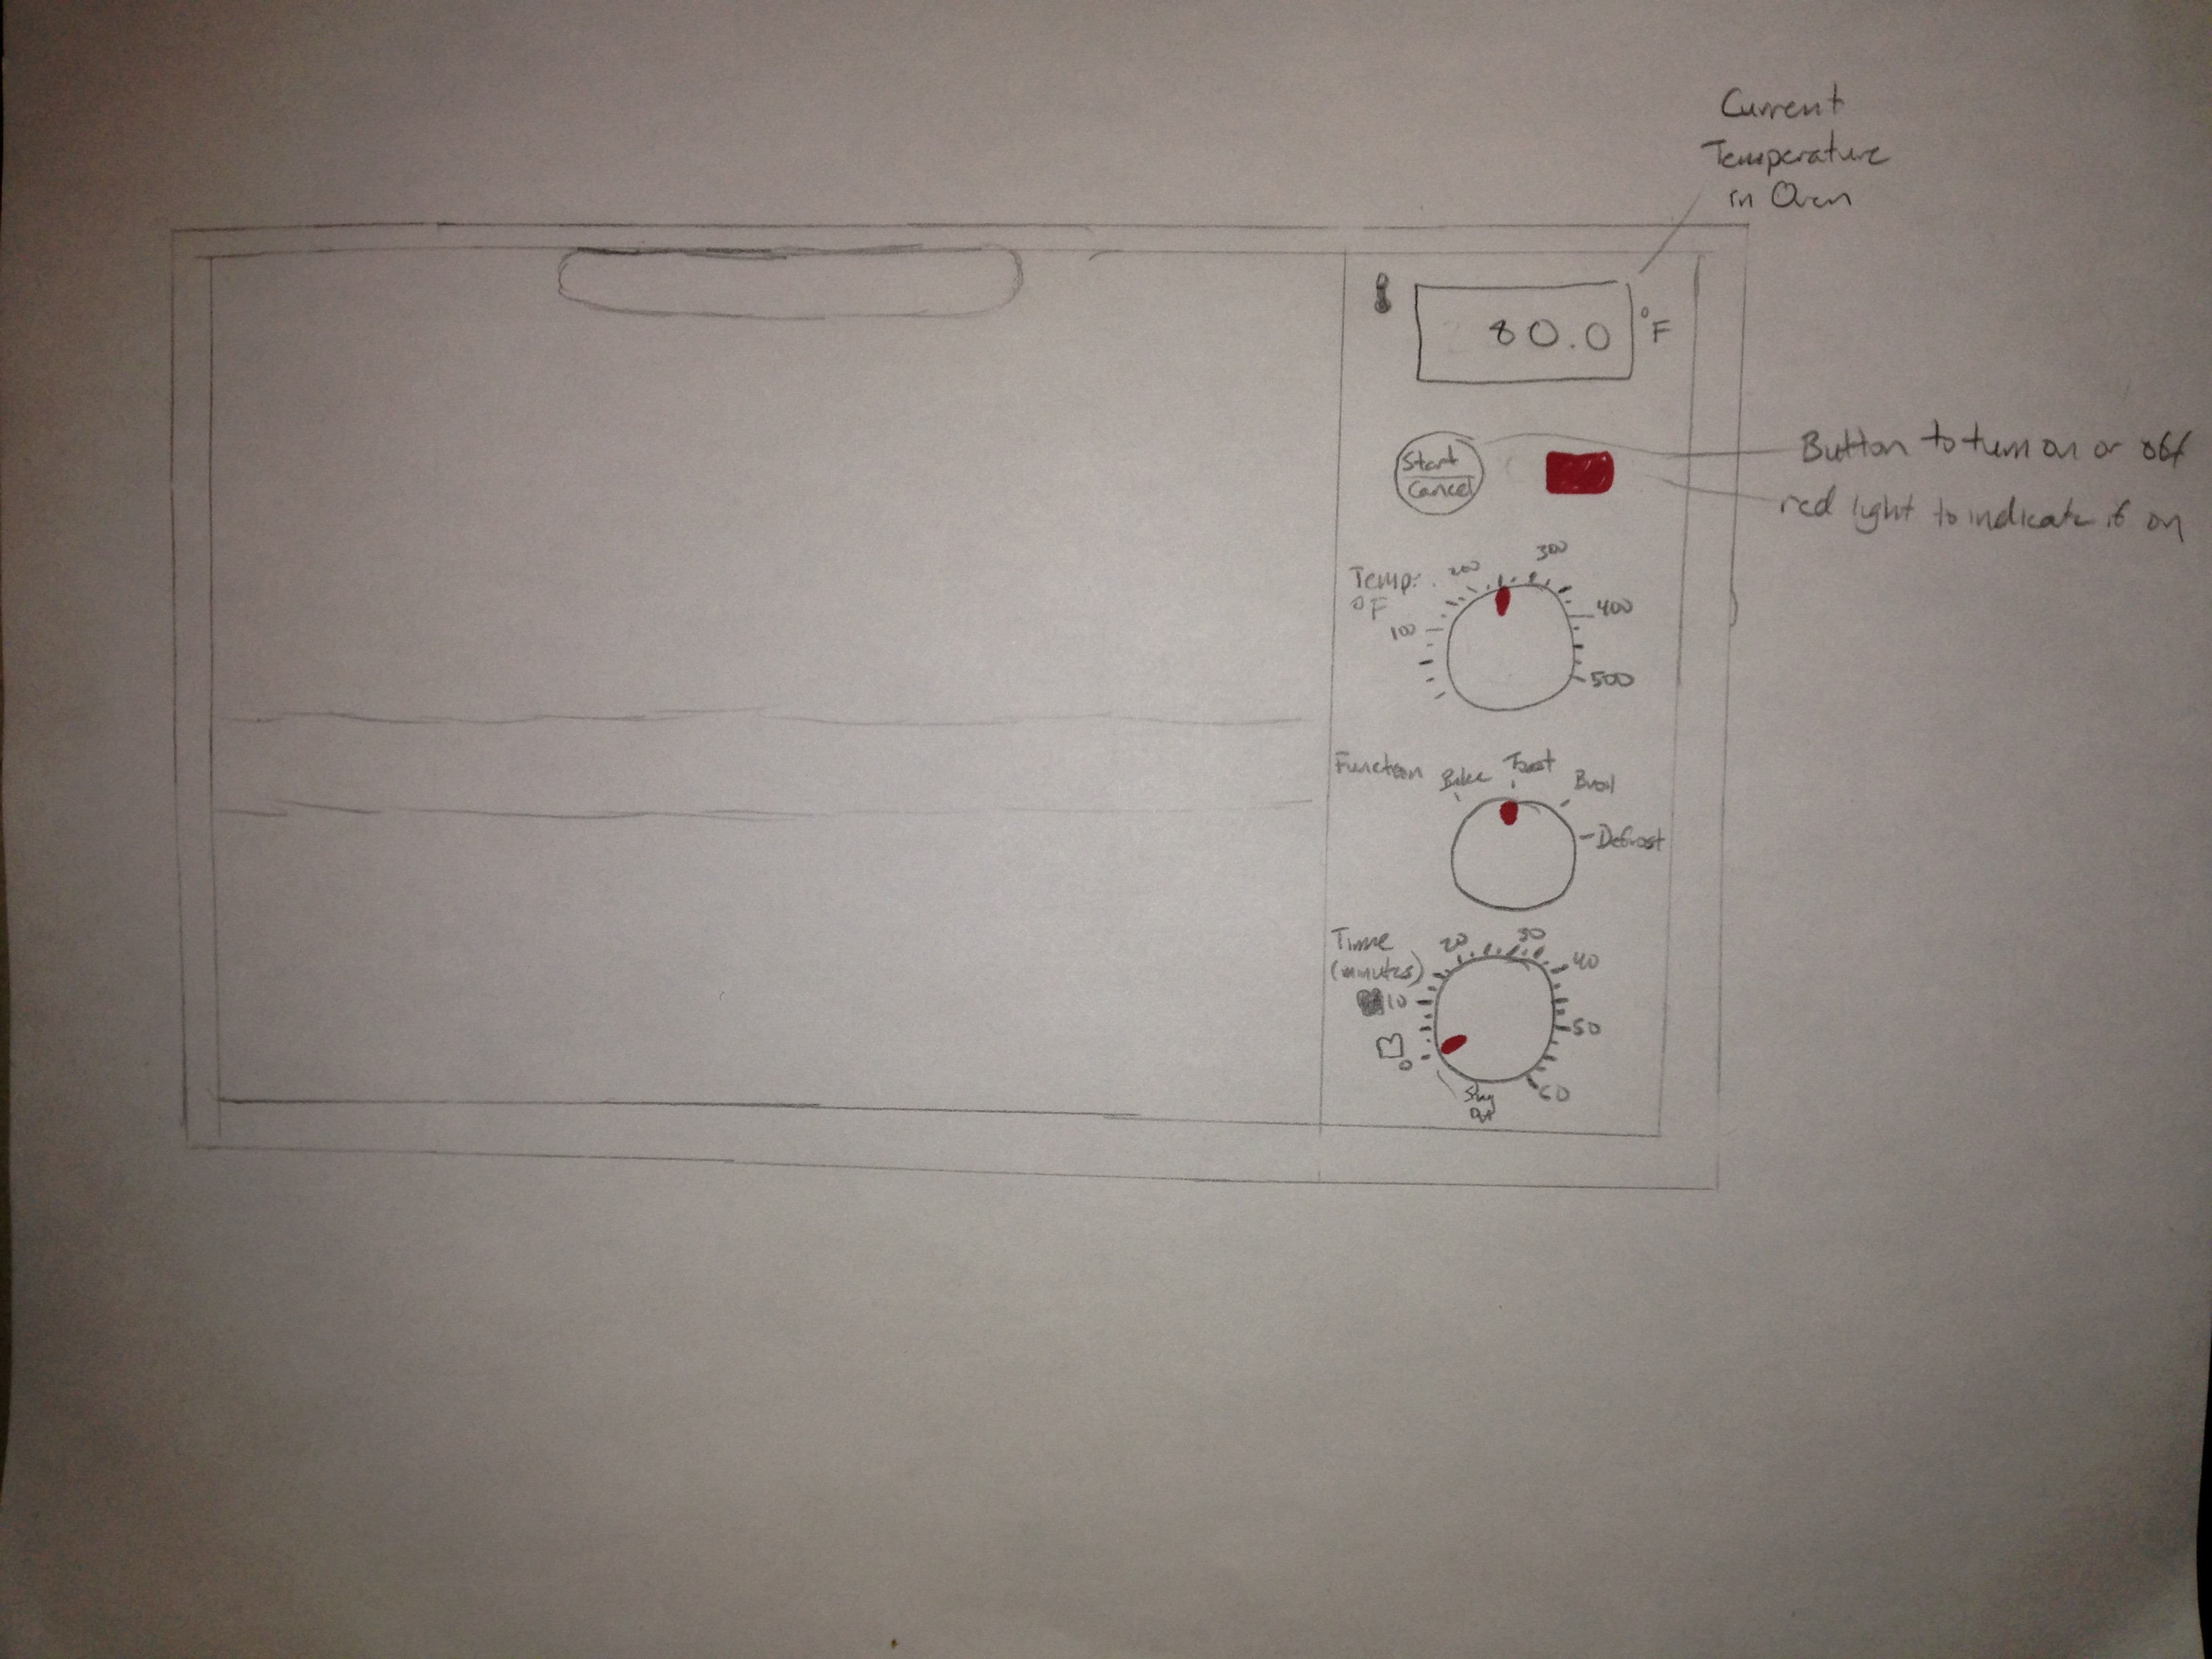 Current
Temperature
in Oven
80.0 °F
Start
Cancel
Button to turn on or off
red light to indicate if on
Temp.
°F
100
200
300
400
500
Function
Bake
Toast
Broil
Defrost
Time
(minutes)
0
10
20
30
40
50
60
Stay
On